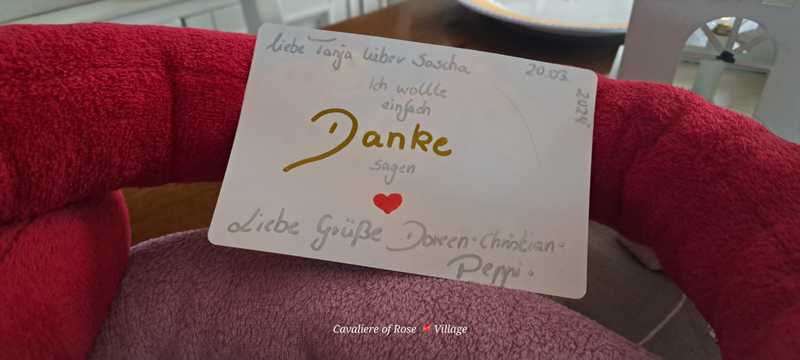 liebe Tanja lieber Sascha
20.03.
2024
Ich wollte
einfach
Danke
sagen
Liebe Grüße Doreen·Christian·
Peppi.
Cavaliere of Rose Village